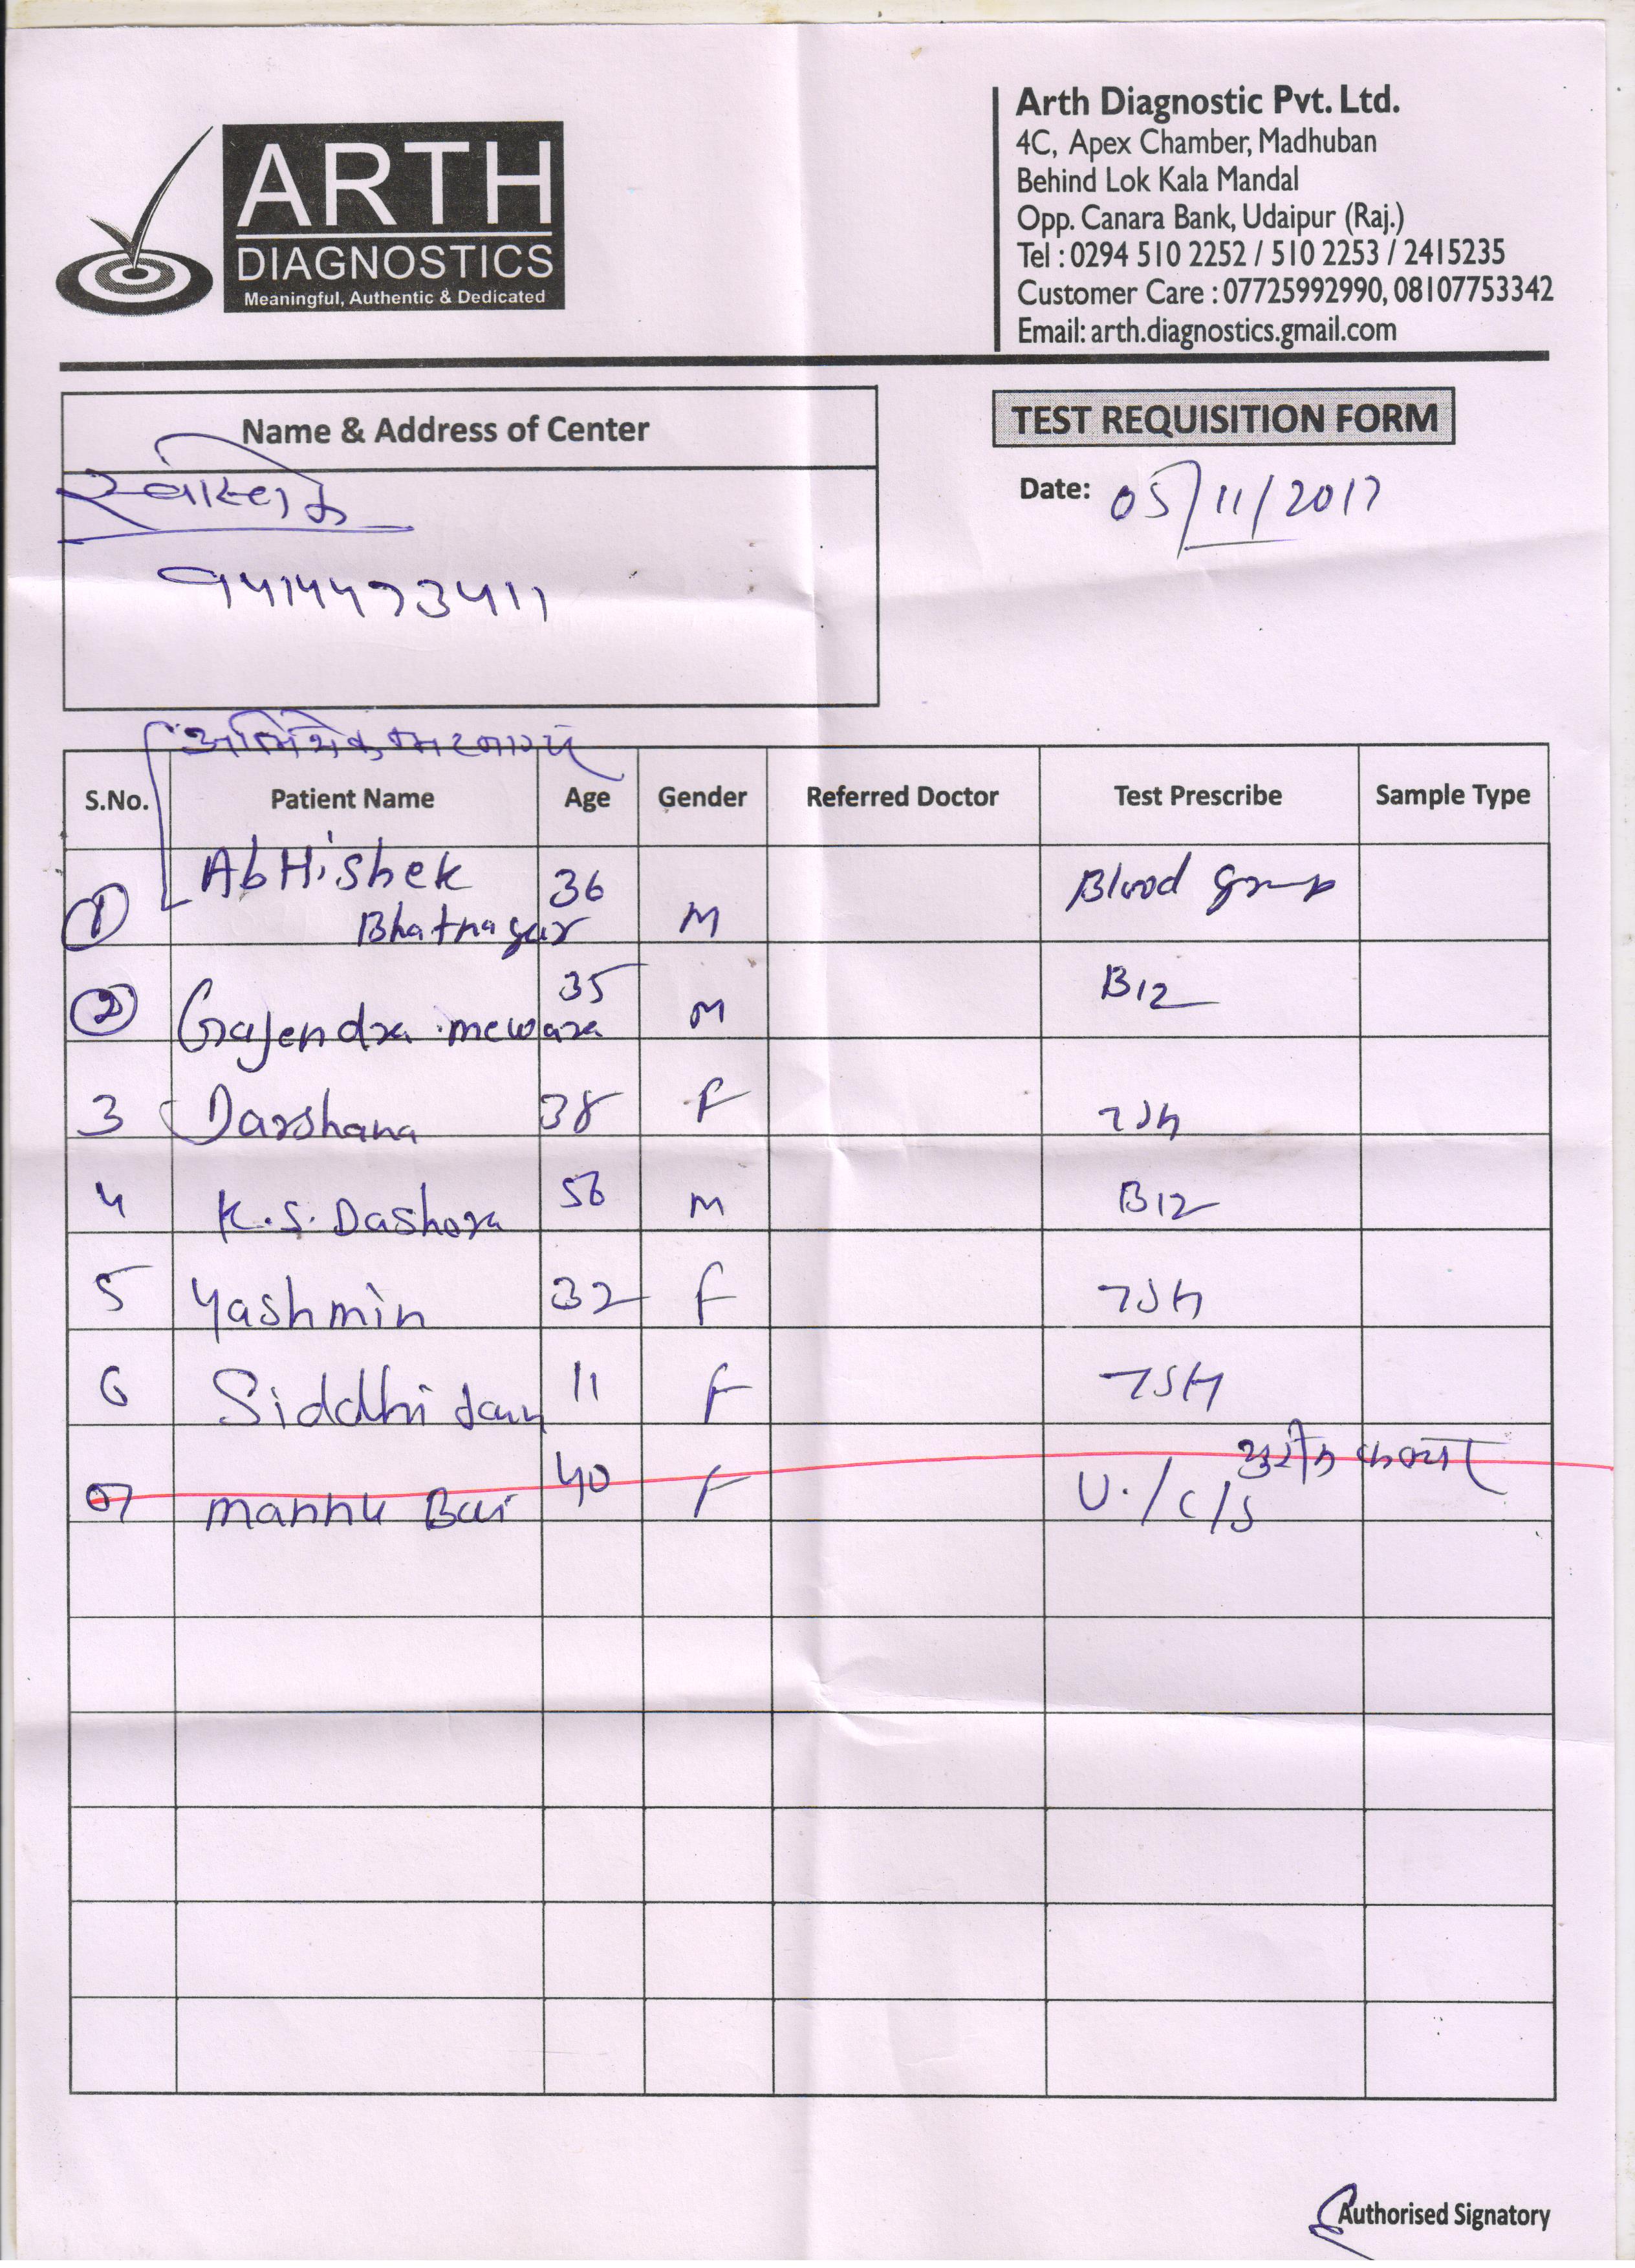 ARTH
DIAGNOSTICS
Meaningful, Authentic & Dedicated
Arth Diagnostic Pvt. Ltd.
4C, Apex Chamber, Madhuban
Behind Lok Kala Mandal
Opp. Canara Bank, Udaipur (Raj.)
Tel : 0294 510 2252 / 510 2253 / 2415235
Customer Care : 07725992990, 08107753342
Email: arth.diagnostics.gmail.com
Name & Address of Center
TEST REQUISITION FORM
Date: 05/11/2017
9414473411
अभिषेक भटनागर
S.No. Patient Name Age Gender Referred Doctor Test Prescribe Sample Type
1 AbHishek Bhatnagar 36 M Blood group
2 Gajendra mewara 35 M B12
3 Darshana 38 F TSH
4 K.S. Dashora 56 M B12
5 Yashmin 32 F TSH
6 Siddhi 11 F TSH
07 mannu Bai 40 F U./C/S
Authorised Signatory